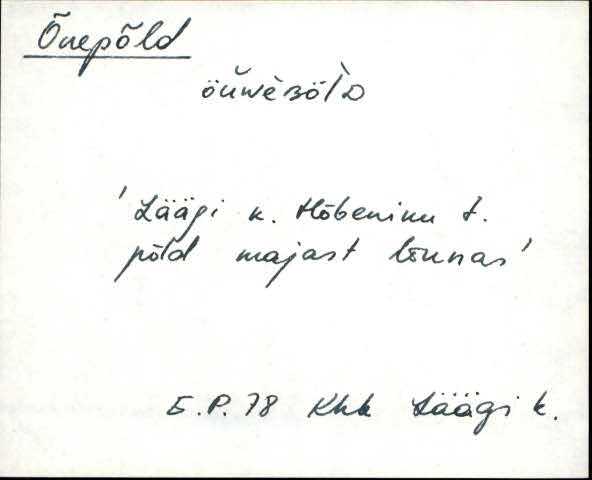 Õuepõld
öŭwèʙöl̀ᴅ
'Läägi k. Hõbeninu t.
põld majast lõunas'
E.P. 78 Khk Läägi k.